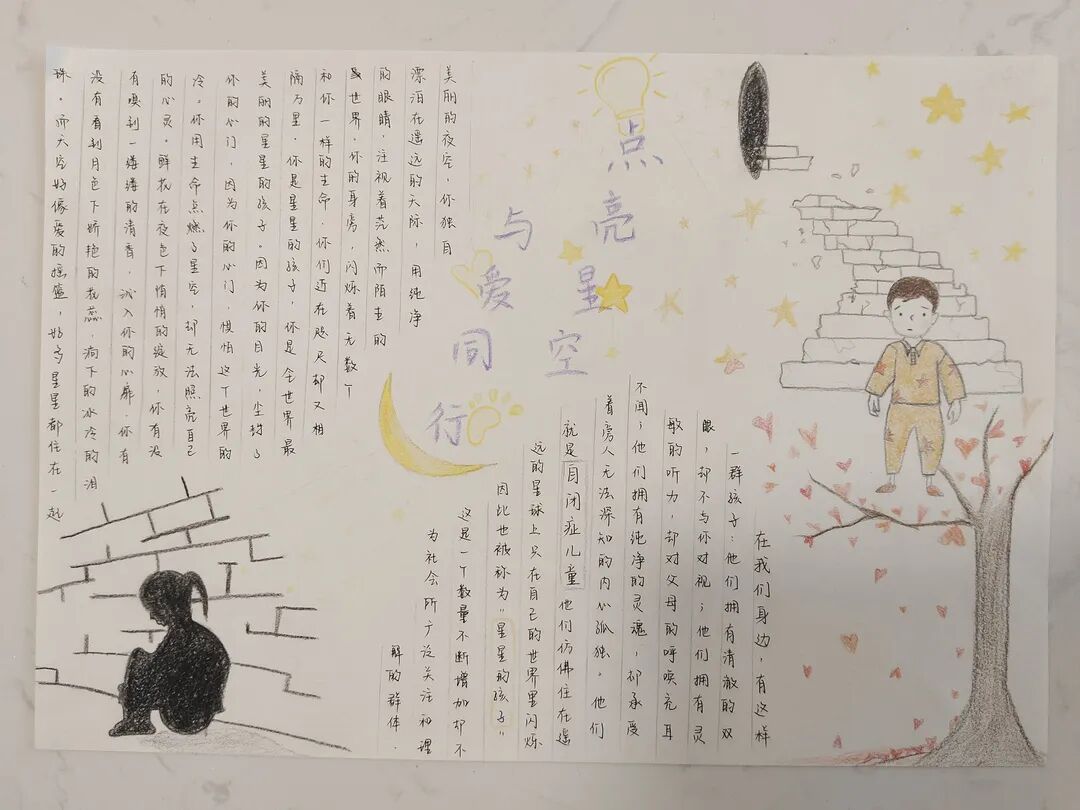 点亮星空
与爱同行
在我们身边，有这样
一群孩子：他们拥有清澈的双
眼，却不与你对视；他们拥有灵
敏的听力，却对父母的呼唤充耳
不闻；他们拥有纯净的灵魂，却承受
着旁人无法深知的内心孤独，他们
就是自闭症儿童 他们仿佛住在遥
远的星球上只在自己的世界里闪烁
因此也被称为“星星的孩子”
这是一个数量不断增加却不
为社会所广泛关注和理
解的群体．
美丽的夜空，你独自
漂泊在遥远的天际，用纯净
的眼睛，注视着茫然而陌生的
世界，你的身旁，闪烁着无数个
和你一样的生命，你们近在咫尺却又相
隔万星，你是星星的孩子，你是全世界最
美丽的星星的孩子。因为你的目光，尘封了
你的心门，因为你的心门，惧怕这个世界的
冷。你用生命点燃了星空，却无法照亮自己
的心灵。鲜花在夜色下悄悄的绽放，你有没
有嗅到一缕缕的清香，沁入你的心扉，你有
没有看到月色下娇艳的花蕊，滴下的冰冷的泪
珠。而天空好像爱的摇篮，好多星星都住在一起